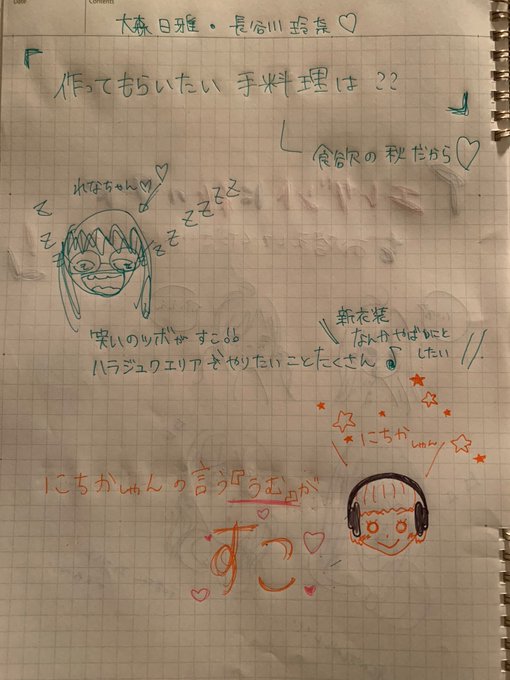 Date
Contents
大森日雅・長谷川玲奈♡
『作ってもらいたい手料理は??』
食欲の秋だから♡
れなちゃん♡♡
z z z z z z z z
笑いのツボがすこ!!
ハラジュクエリアでやりたいことたくさん♪
\\ 新衣装
なんかやばかにと
したい //
にちかしゃん
にちかしゃんの言う『うむ』が
すこ